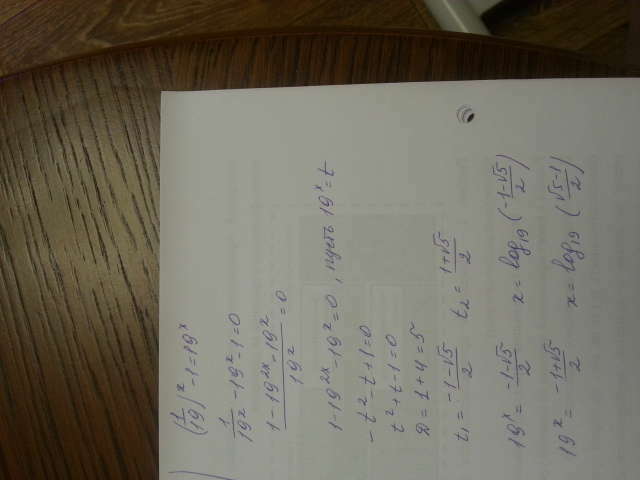 (1/19)^x - 1 = 19^x
1/19^x - 19^x - 1 = 0
(1 - 19^2x - 19^x)/19^x = 0
1 - 19^2x - 19^x = 0 , пусть 19^x = t
-t^2 - t + 1 = 0
t^2 + t - 1 = 0
D = 1 + 4 = 5
t1 = (-1-√5)/2 t2 = (1+√5)/2
19^x = (-1-√5)/2 x = log19 (-1-√5)/2)
19^x = (-1+√5)/2 x = log19 (√5-1)/2)